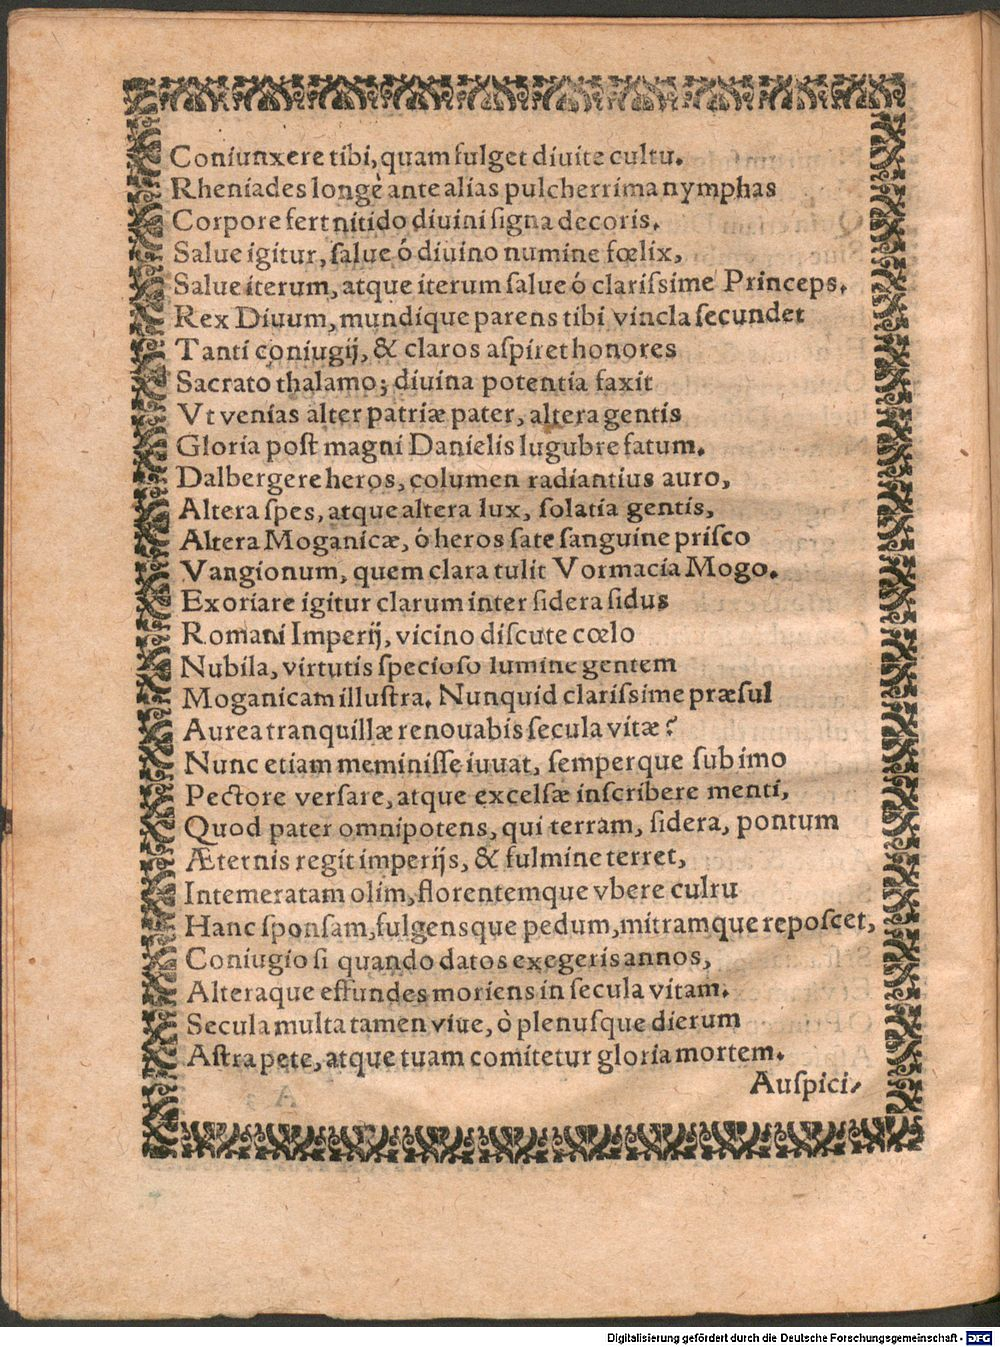 Coniunxere tibi, quam fulget diuite cultu.
Rheniades longè ante alias pulcherrima nymphas
Corpore fert nitido diuini signa decoris.
Salue igitur, salue ó diuino numine fœlix,
Salue iterum, atque iterum salue ó clarissime Princeps.
Rex Diuum, mundique parens tibi vincla secundet
Tanti coniugij, & claros aspiret honores
Sacrato thalamo; diuina potentia faxit
Vt venias alter patriæ pater, altera gentis
Gloria post magni Danielis lugubre fatum.
Dalbergere heros, columen radiantius auro,
Altera spes, atque altera lux, solatia gentis,
Altera Moganicæ, ò heros sate sanguine prisco
Vangionum, quem clara tulit Vormacia Mogo.
Exoriare igitur clarum inter sidera sidus
Romani Imperij, vicino discute cœlo
Nubila, virtutis specioso lumine gentem
Moganicam illustra. Nunquid clarissime præsul
Aurea tranquillæ renouabis secula vitæ?
Nunc etiam meminisse iuuat, semperque sub imo
Pectore versare, atque excelsæ inscribere menti,
Quod pater omnipotens, qui terram, sidera, pontum
Æternis regit imperijs, & fulmine terret,
Intemeratam olim, florentemque vbere cultu
Hanc sponsam, fulgensque pedum, mitramque reposcet,
Coniugio si quando datos exegeris annos,
Alteraque effundes moriens in secula vitam.
Secula multa tamen viue, ò plenusque dierum
Astra pete, atque tuam comitetur gloria mortem.
Auspici-
Digitalisierung gefördert durch die Deutsche Forschungsgemeinschaft - DFG